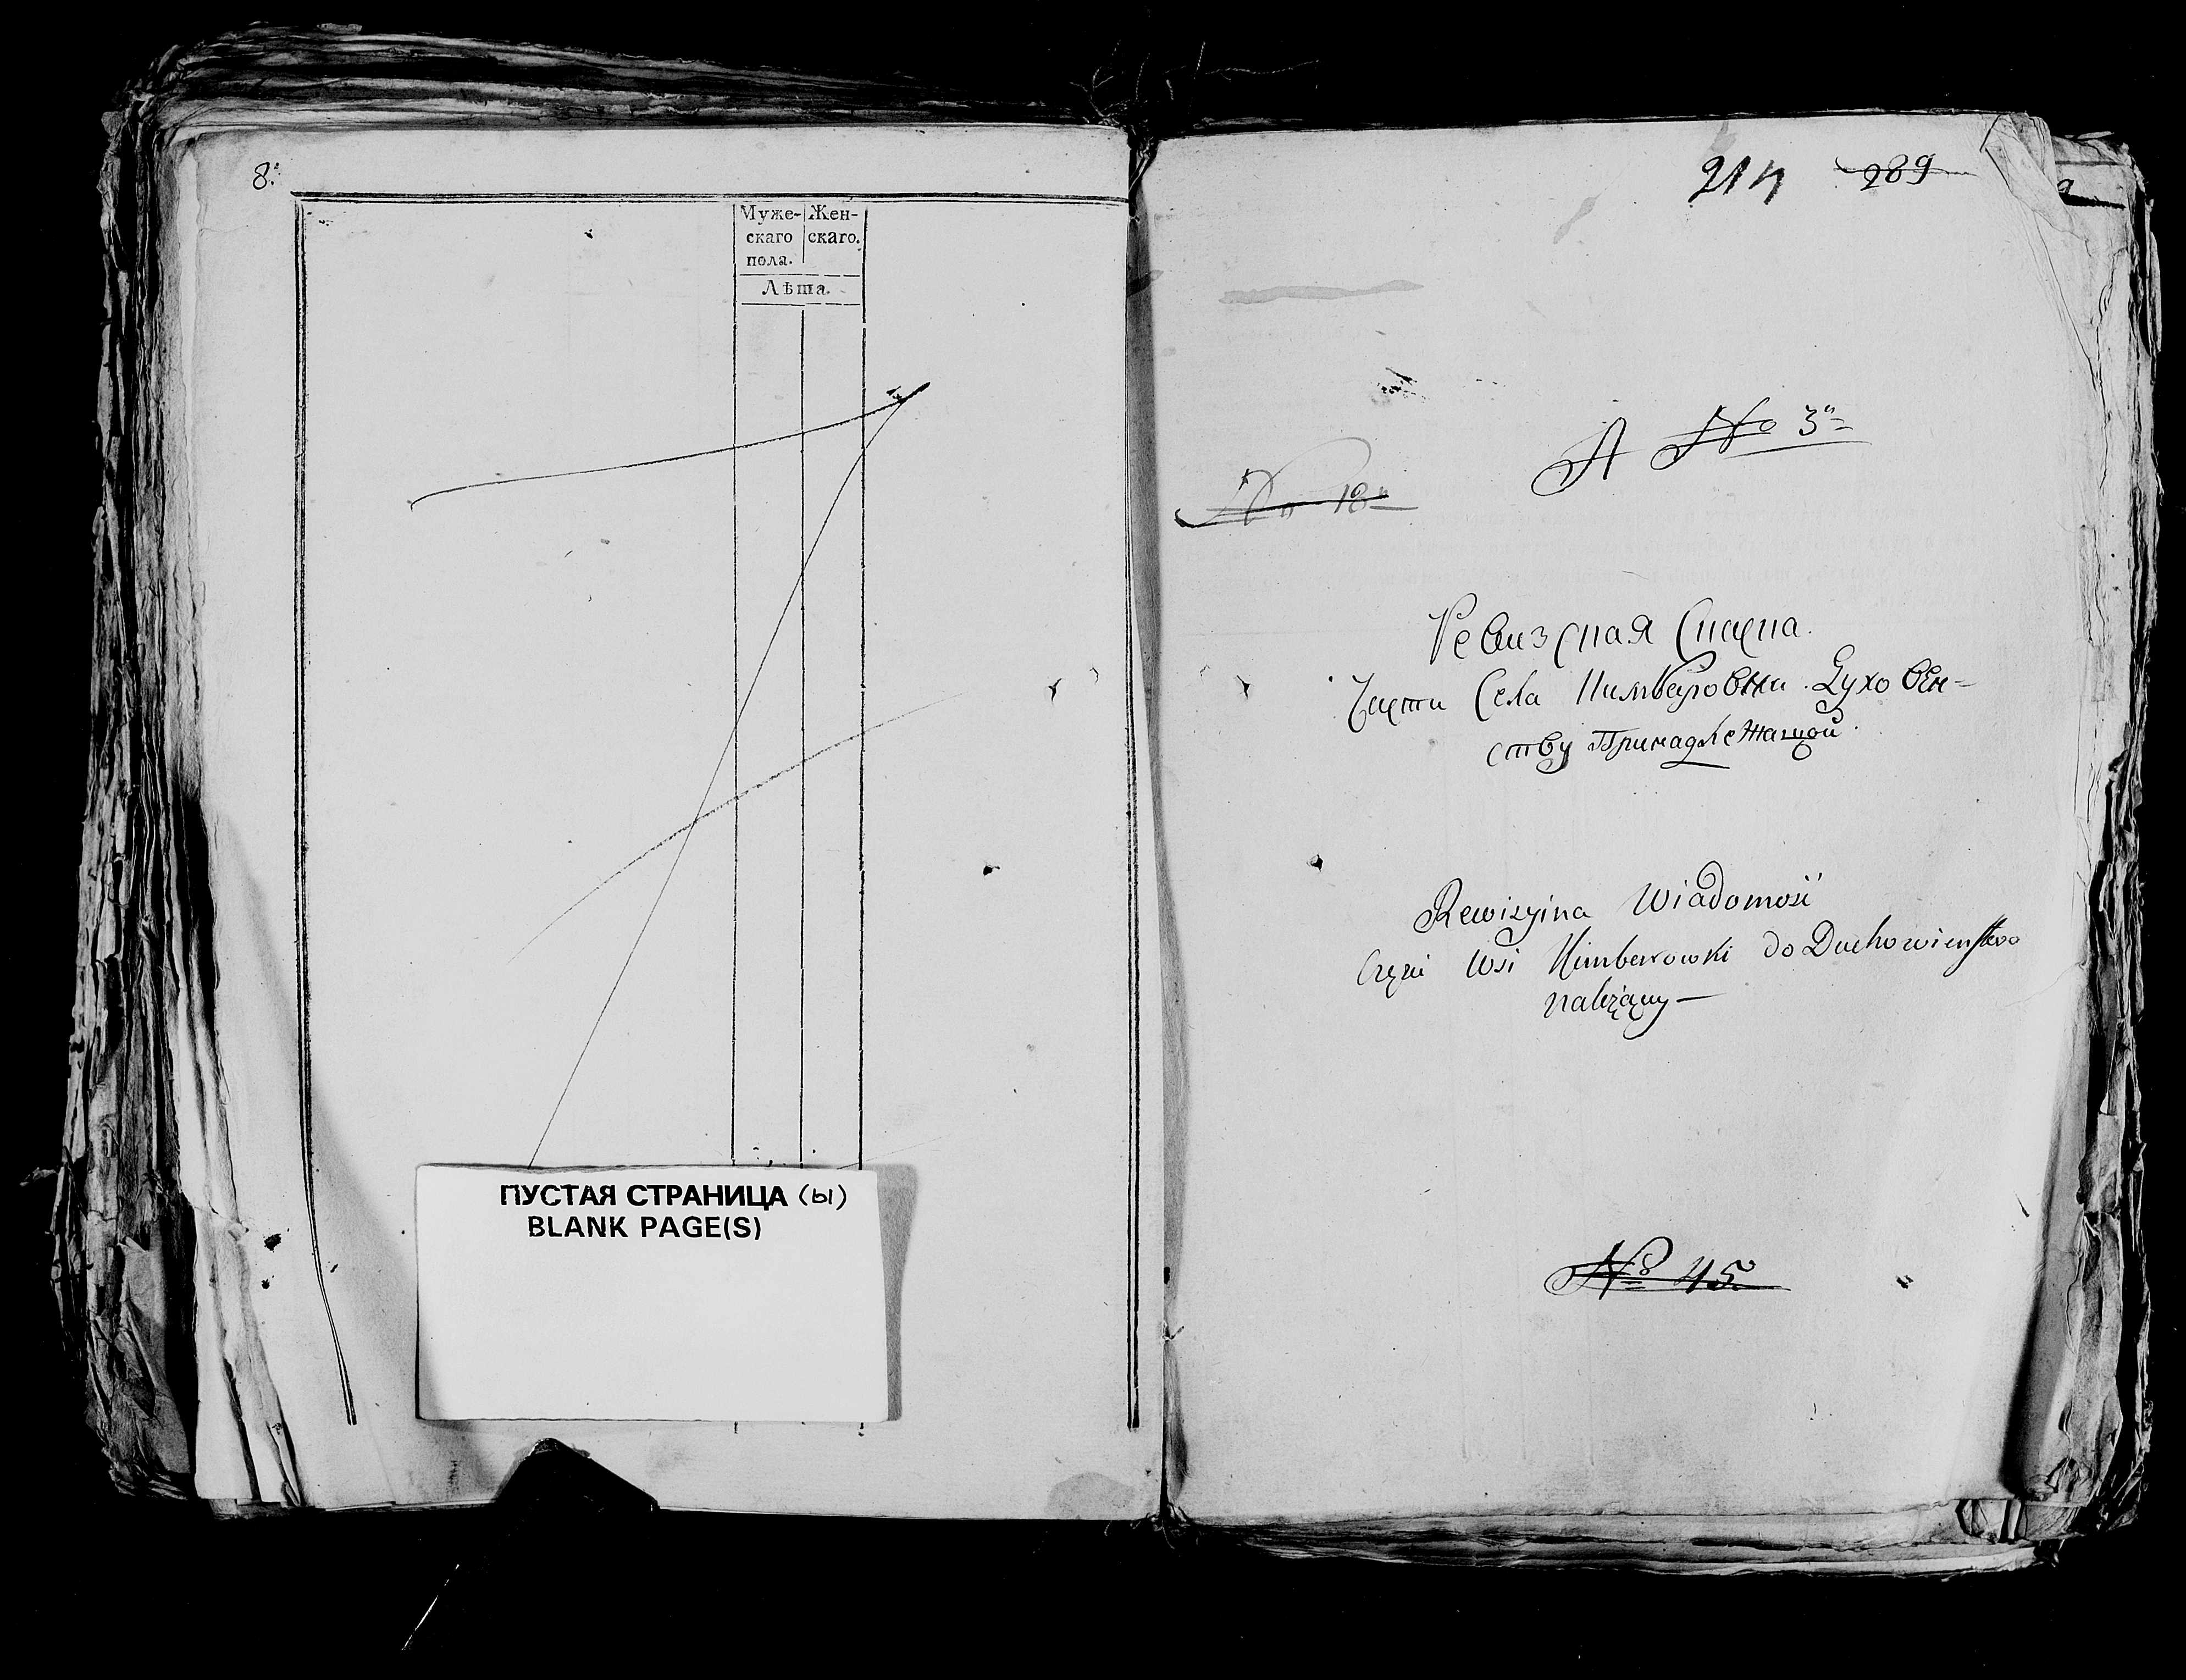 8.
Муже- Жен-
скаго скаго.
пола.
Лѣта.
ПУСТАЯ СТРАНИЦА (ы)
BLANK PAGE(S)
214 289
А № 3
№ 18
Ревизская Сказка
Части Села Нимберовки Духовен-
ству Принадлежащой
Rewizyina Wiadomość
Części Wsi Nimberowki do Duchowienstwa
należący
№ 45